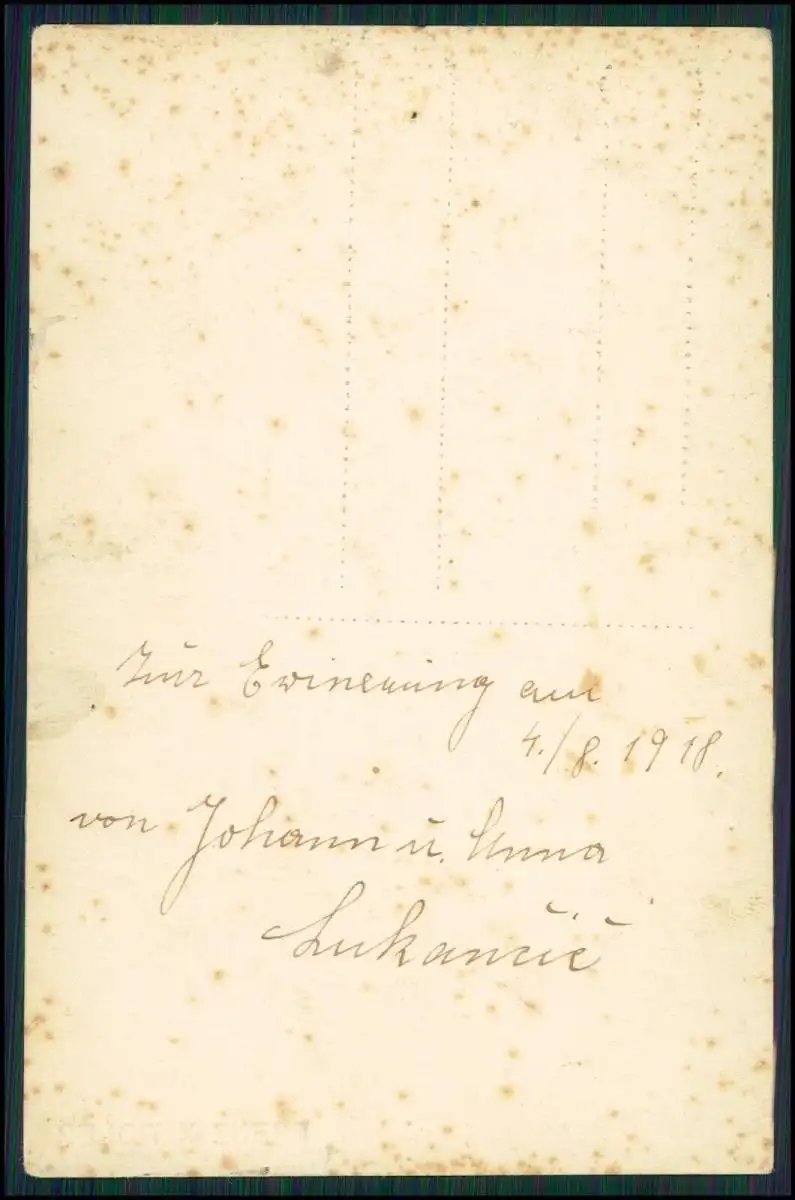 Zur Erinerung am
4./8. 1918.
von Johann u. Anna
Lukančič